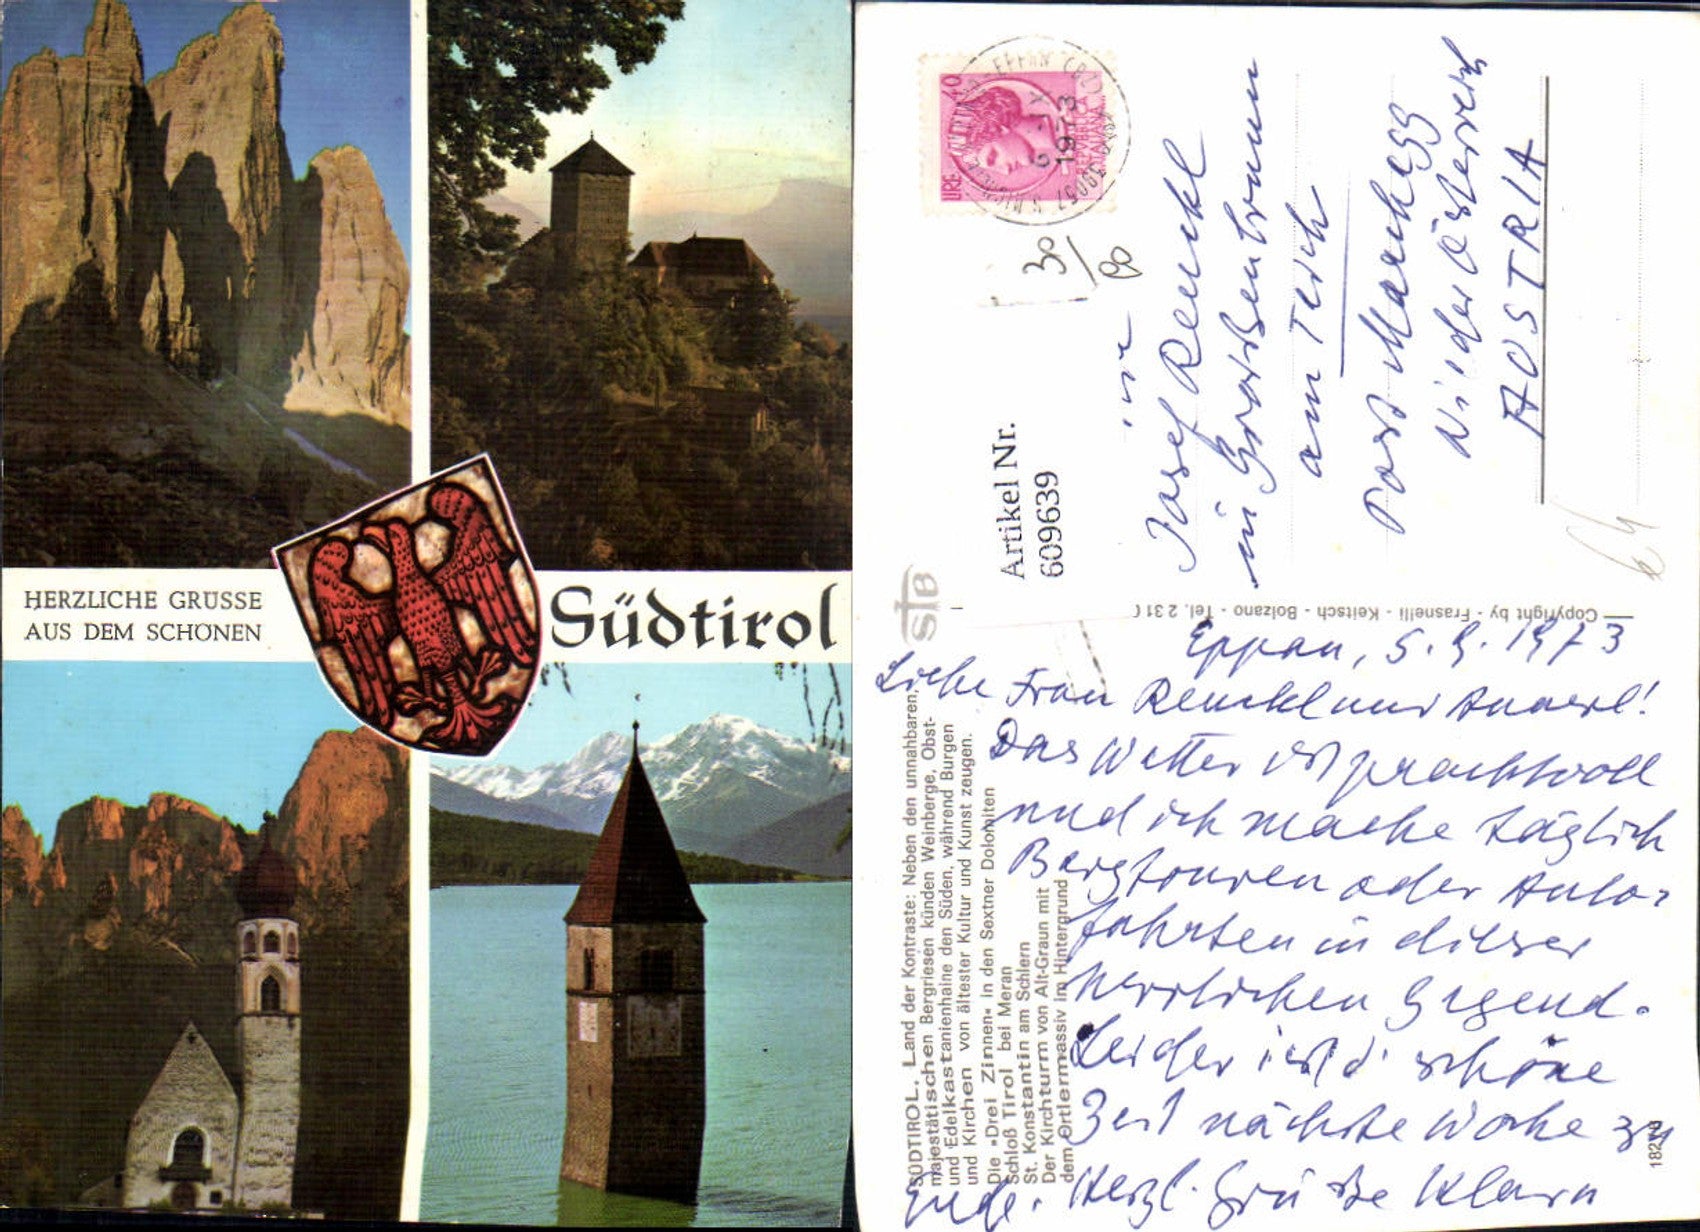 HERZLICHE GRÜSSE
AUS DEM SCHÖNEN
Südtirol
LIRE 40
REPVBBLICA
ITALIANA
EPPAN (BZ)
6 - X
1973
39057
30/80
Artikel Nr.
609639
Josef
in Großenbrunn
am Teich
Post Marchegg
Nieder Österreich
AUSTRIA
StB
Copyright by - Frasnelli - Keitsch - Bolzano - Tel. 2 31
SÜDTIROL. Land der Kontraste: Neben den unnahbaren,
majestätischen Bergriesen künden Weinberge, Obst-
und Edelkastanienhaine den Süden, während Burgen
und Kirchen von ältester Kultur und Kunst zeugen.
Die »Drei Zinnen« in den Sextner Dolomiten
Schloß Tirol bei Meran
St. Konstantin am Schlern
Der Kirchturm von Alt-Graun mit
dem Ortlermassiv im Hintergrund
Eppan, 5. 9. 1973
Liebe Frau und Annerl!
Das Wetter ist prachtvoll
und ich mache täglich
Bergtouren oder Auto-
fahrten in dieser
herrlichen Gegend.
Leider ist d' schöne
Zeit nächste Woche zu
Ende. Herzl. Grüße Klara